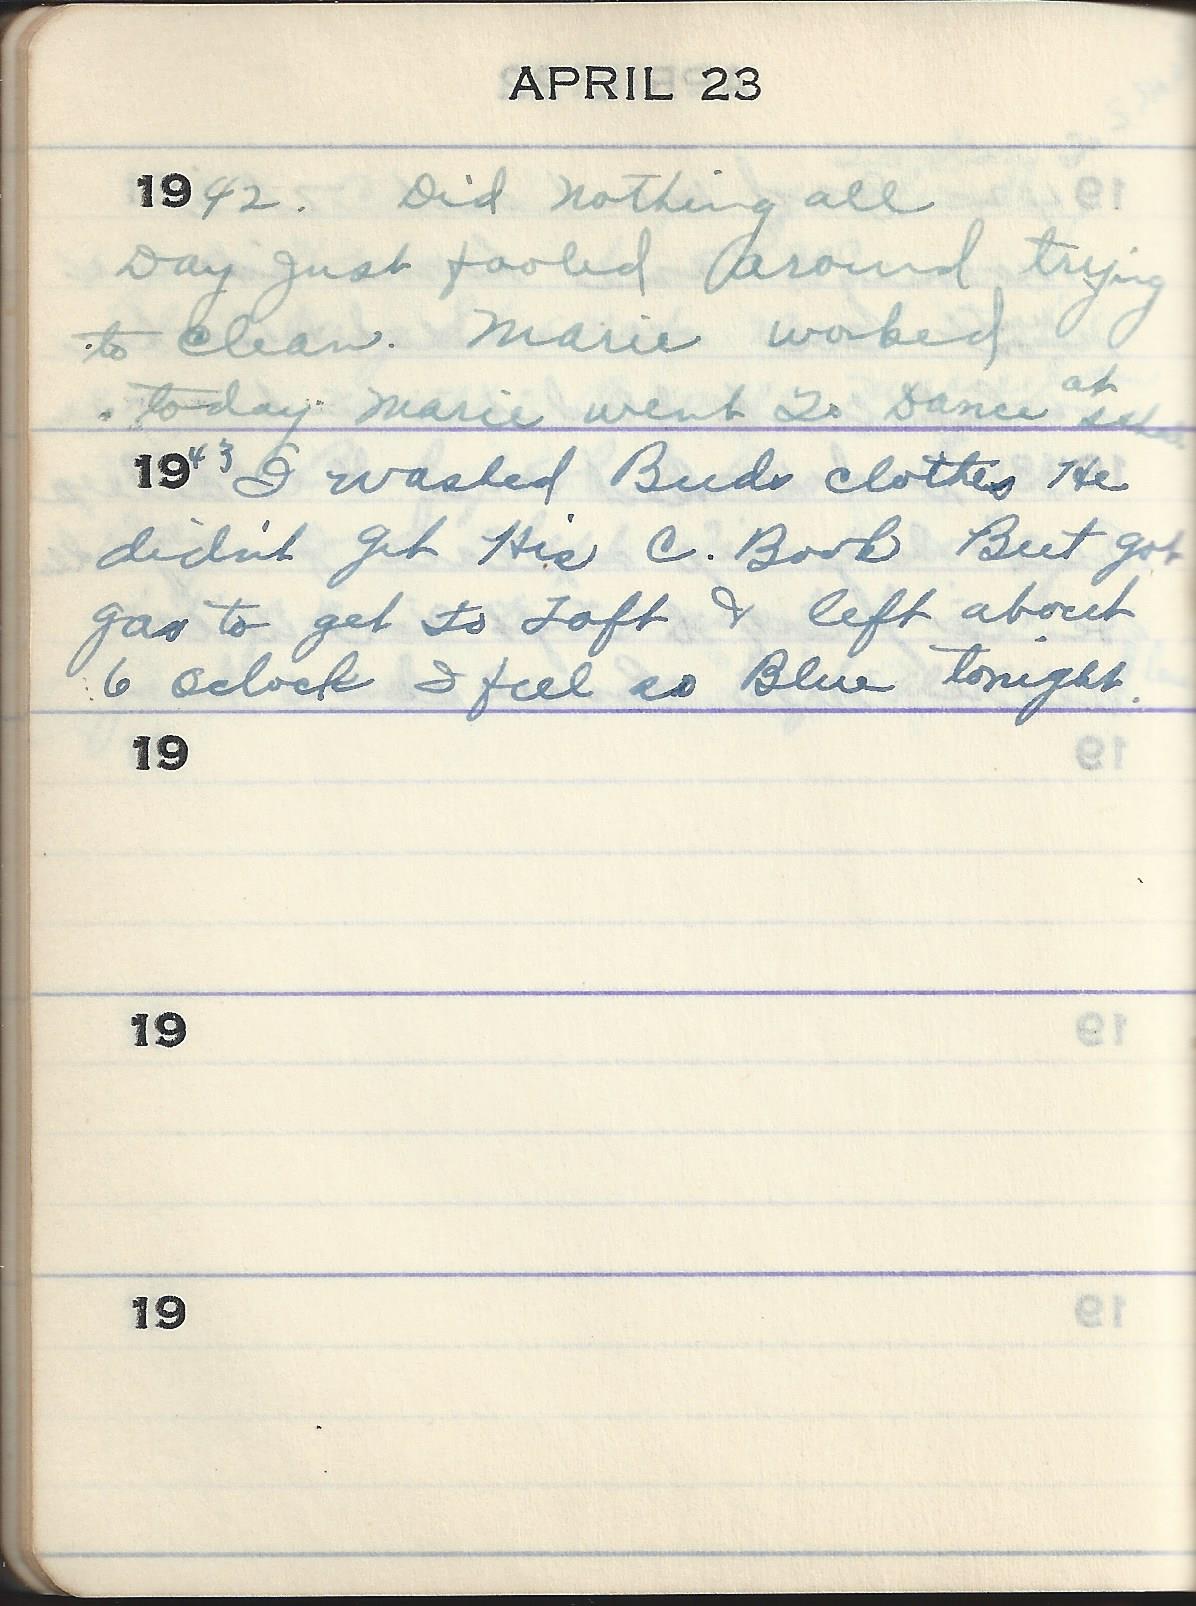 APRIL 23
1942. Did nothing all
Day Just fooled around trying
to clean. Marie worked
today. Marie went To Dance at
1943 I washed Buds clothes He
didn't get His C. Book But got
gas to get to Taft & left about
6 oclock I feel so Blue tonight.
19
19
19